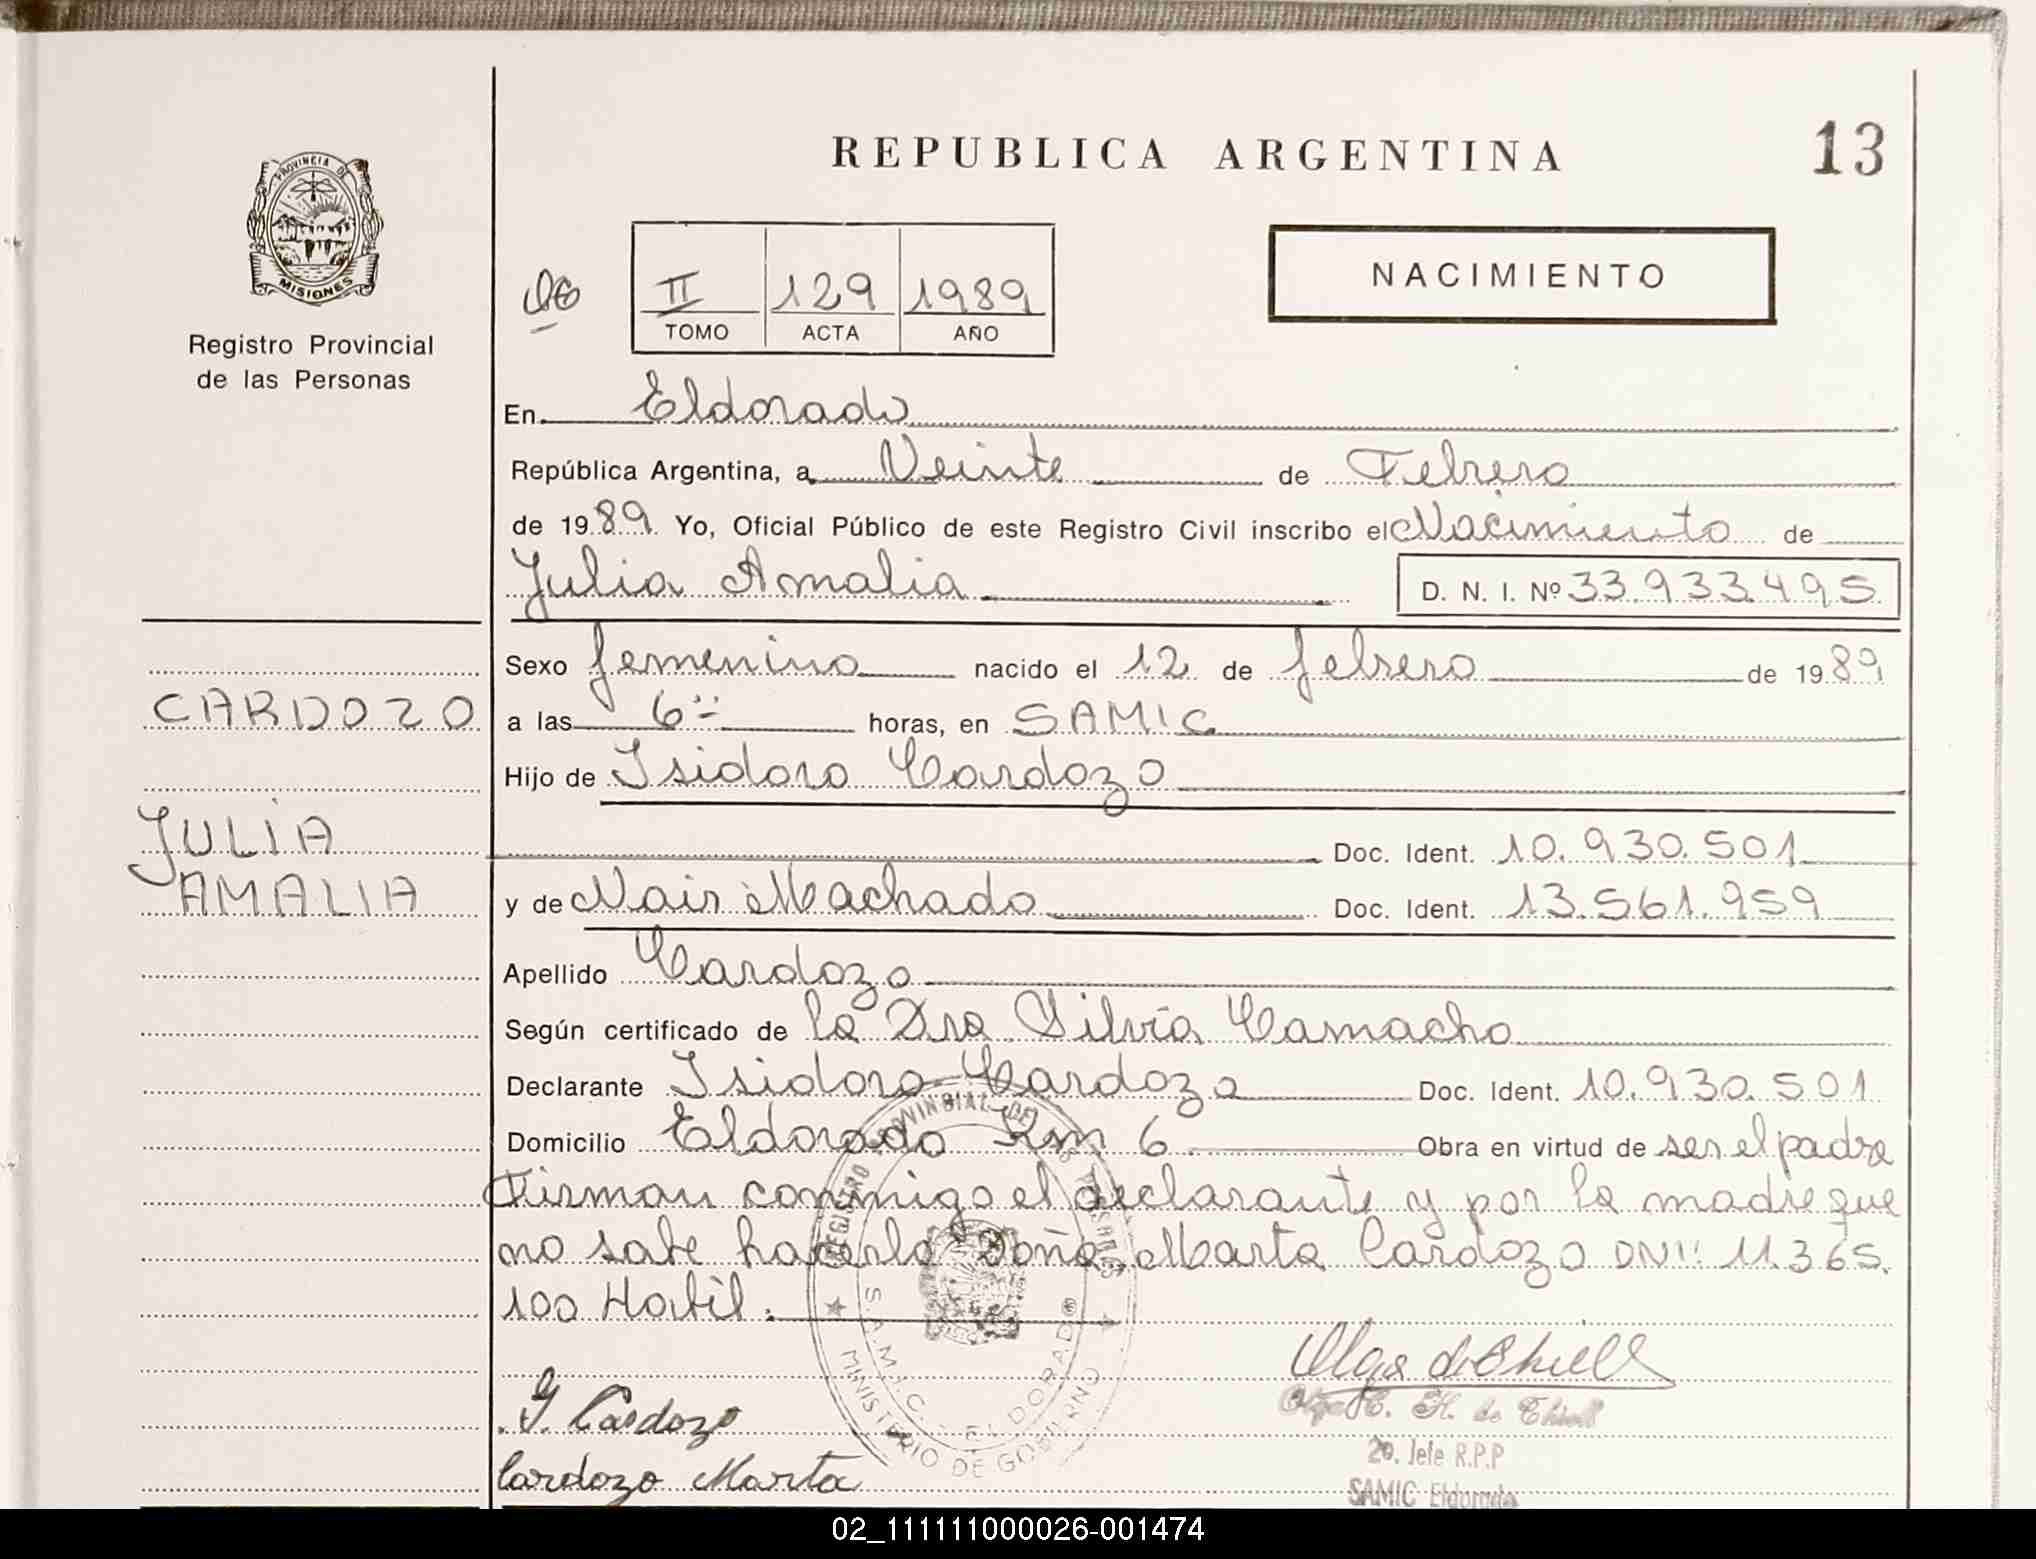 REPUBLICA ARGENTINA
13
PROVINCIA DE
MISIONES
Registro Provincial
de las Personas
II 129 1989
TOMO ACTA AÑO
NACIMIENTO
En Eldorado
República Argentina, a Veinte de Febrero
de 1989 Yo, Oficial Público de este Registro Civil inscribo el Nacimiento de
Julia Amalia D. N. I. Nº 33.933.495
Sexo femenino nacido el 12 de febrero de 1989
CARDOZO
a las 6 horas, en SAMIC
Hijo de Isidoro Cardozo
JULIA
AMALIA
Doc. Ident. 10.930.501
y de Nair Machado Doc. Ident. 13.561.959
Apellido Cardozo
Según certificado de la Dra Silvia Camacho
Declarante Isidoro Cardozo Doc. Ident. 10.930.501
Domicilio Eldorado Km 6 Obra en virtud de ser el padre
Firman conmigo el declarante y por la madre que
no sabe hacerlo Doña Marta Cardozo DNI: 11.365.
100 Habil.
REGISTRO PROVINCIAL DE LAS PERSONAS
S.A.M.I.C. - ELDORADO
MINISTERIO DE GOBIERNO
Olga de Thiell
Olga E. H. de Thiell
2o. Jefe R.P.P
SAMIC Eldorado
I Cardozo
Cardozo Marta
02_111111000026-001474